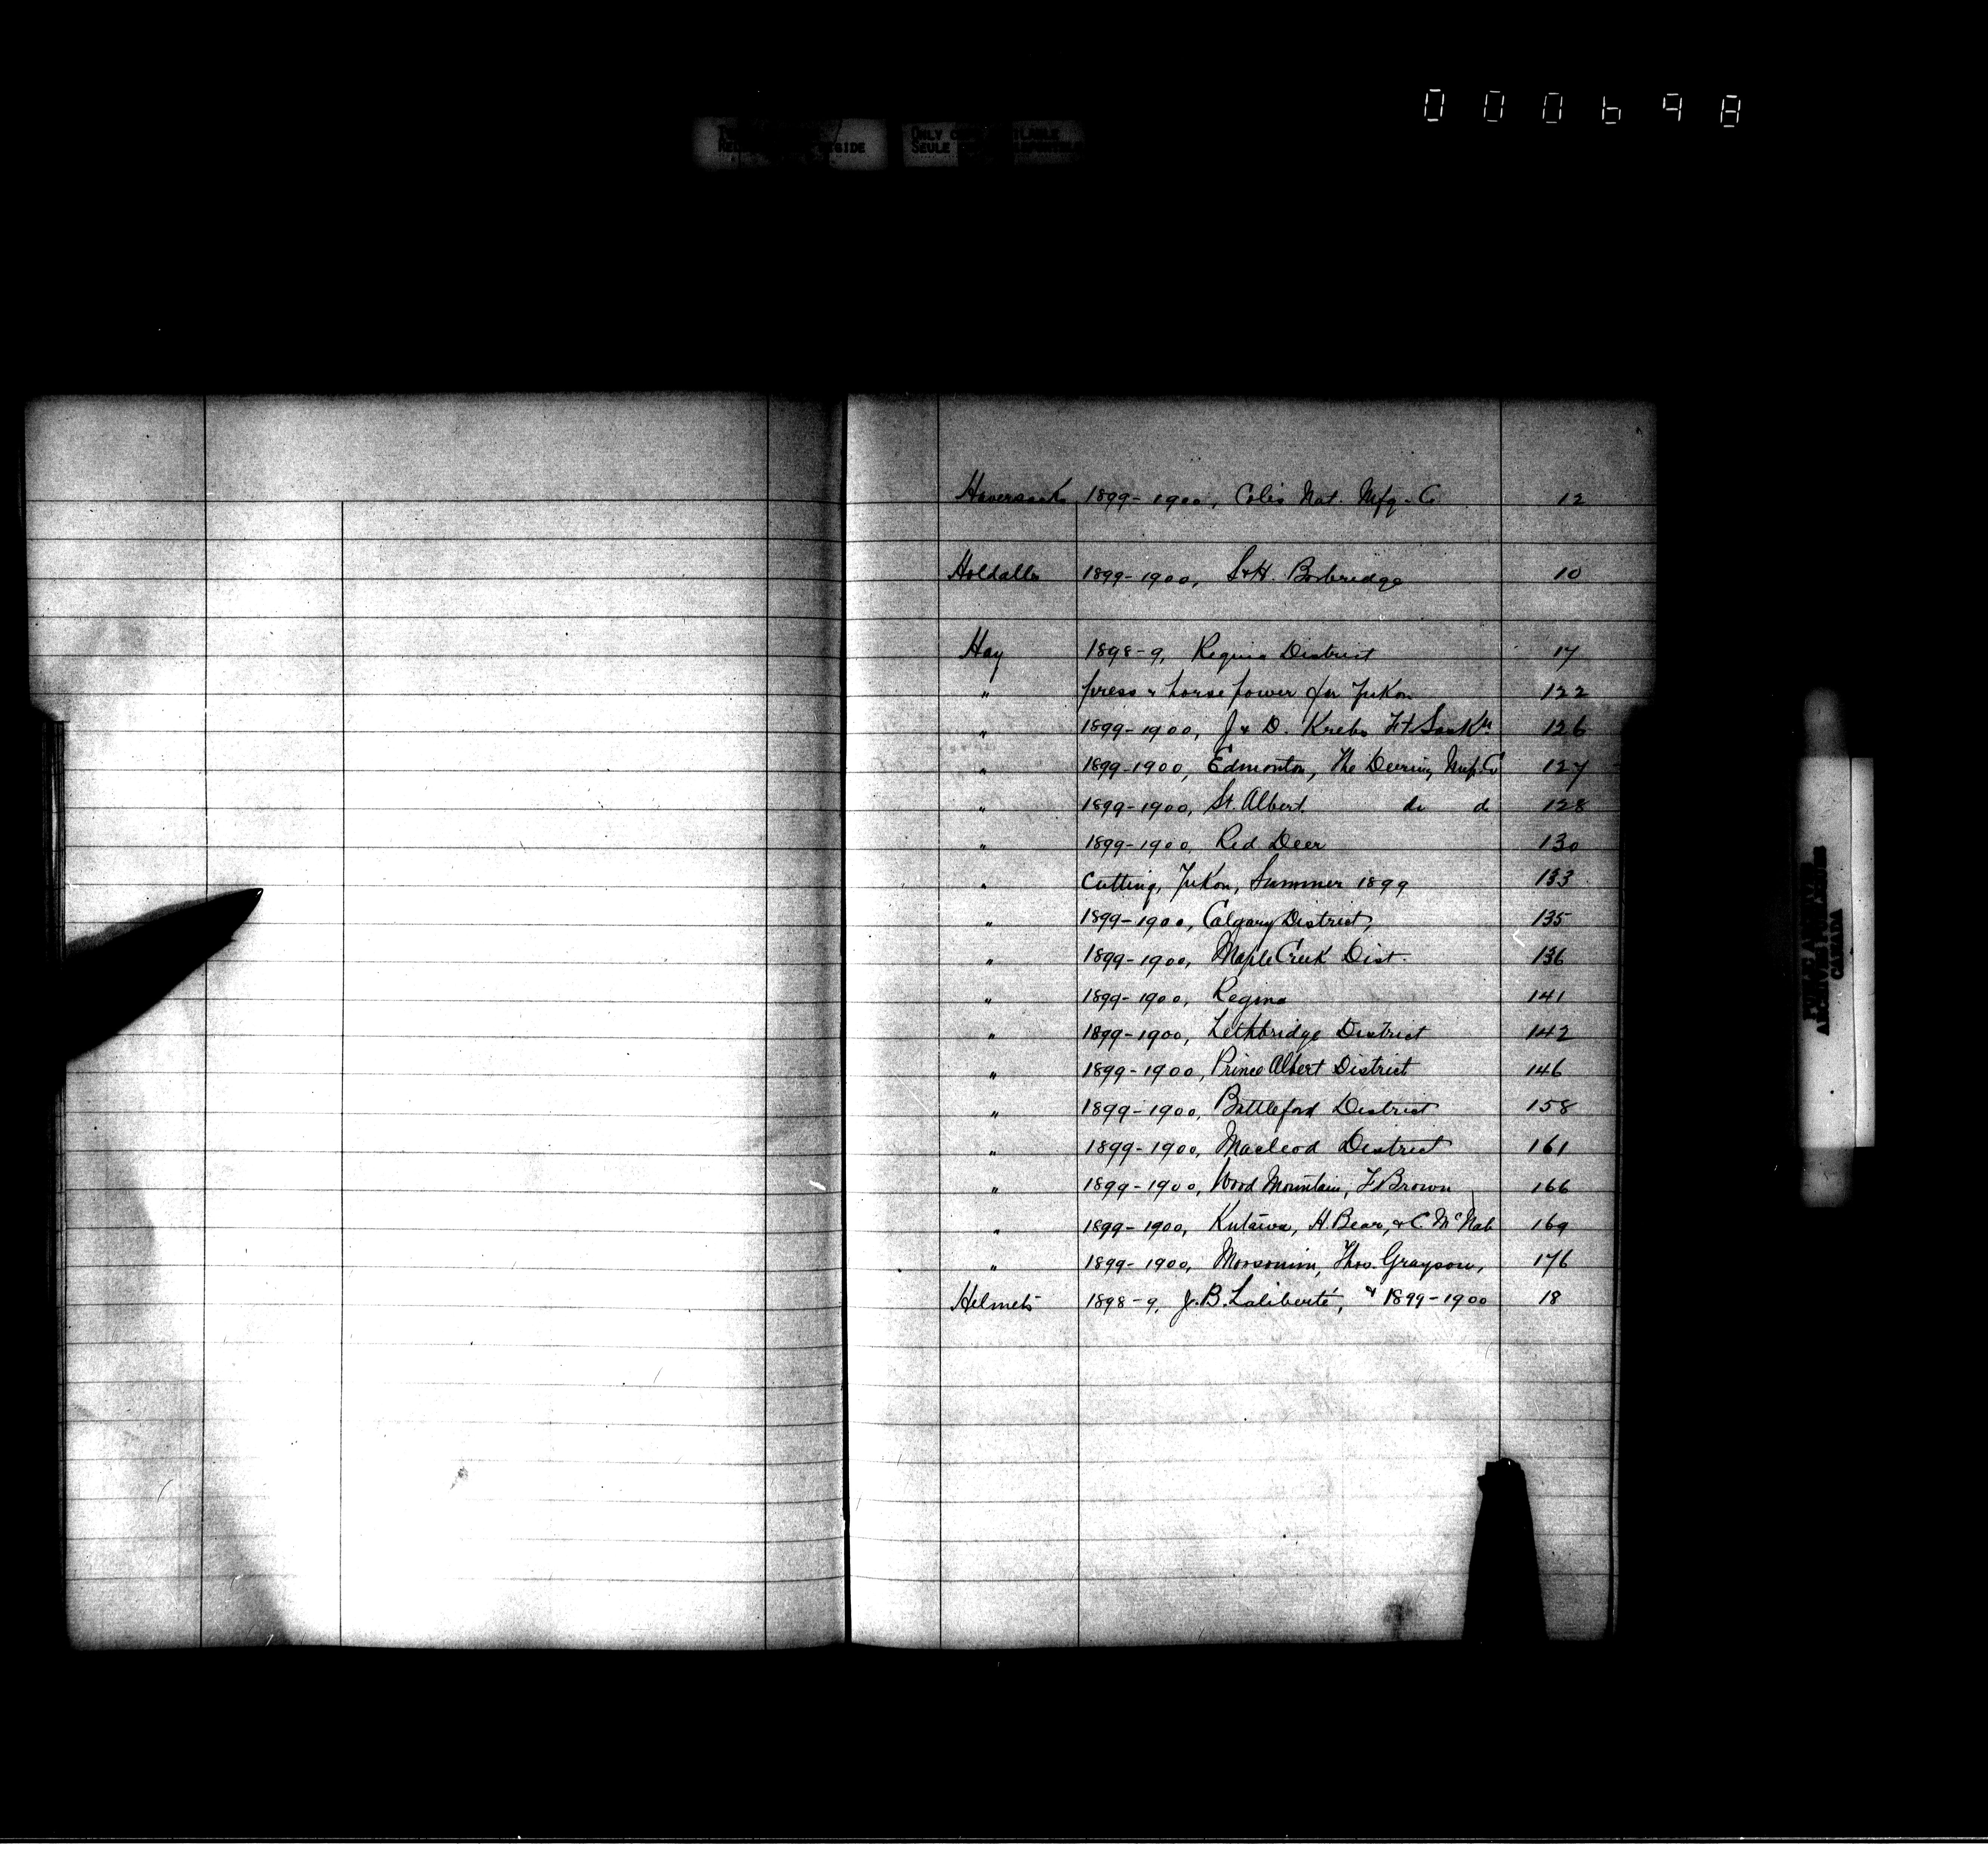 000698
ONLY
SEULE
Haversacks 1899-1900, Colis Nat. Mfg. Co 12
Holdalls 1899-1900, S & H. Borbridge 10
Hay 1898-9, Regina District 17
" press & horse power for Yukon 122
" 1899-1900, J & D. Krebs Ft Saskn 126
" 1899-1900, Edmonton, The Deering Mnf. Co 127
" 1899-1900, St. Albert do do 128
" 1899-1900, Red Deer 130
" Cutting, Yukon, Summer 1899 133
" 1899-1900, Calgary District, 135
" 1899-1900, Maple Creek Dist. 136
" 1899-1900, Regina 141
" 1899-1900, Lethbridge District 142
" 1899-1900, Prince Albert District 146
" 1899-1900, Battleford District 158
" 1899-1900, Macleod District 161
" 1899-1900, Wood Mountain, F Brown 166
" 1899-1900, Kutawa, H. Bear, & C. McNab 169
" 1899-1900, Moosomin, Thos. Grayson, 176
Helmets 1898-9, J. B. Laliberté, & 1899-1900 18
ARCHIVES
CANADA